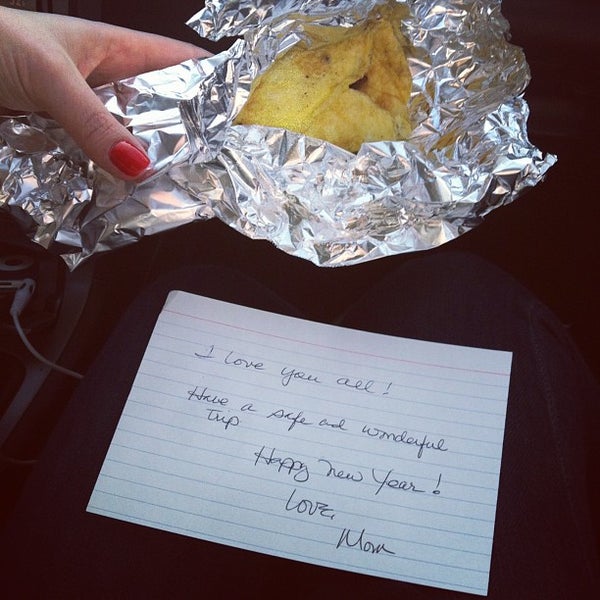 I love you all!
Have a safe ad wonderful
Trip
Happy New Year!
Love,
Mom